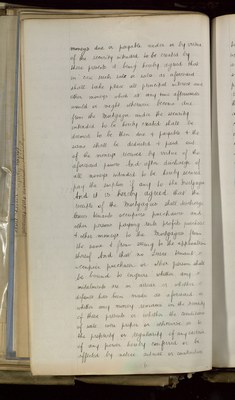 moneys due or payable under or by virtue
of the security intended to be created by
these presents it being hereby agreed that
in case such sale or sales as aforesaid
shall take place all principal interest and
other moneys which at any time afterwards
would or might otherwise become due
from the Mortgagor under the security
intended to be hereby created shall be
deemed to be then due & payable & the
same shall be deducted & paid out
of the moneys received by virtue of the
aforesaid power And after discharge of
all moneys intended to be hereby secured
pay the surplus if any to the Mortgagor
And it is hereby agreed that the
receipt of the Mortgagees shall discharge
them tenants occupiers purchasers and
other persons paying rents profits purchase
& other moneys to the Mortgagees from
the same & from seeing to the application
thereof And that no lessee tenant
occupier purchaser or other person shall
be bound to enquire whether any
instalments are in arrear or whether
default has been made as aforesaid or
whether any money remains on the security
of these presents or whether the conditions
of sale were proper or otherwise or to
the propriety or regularity of any exercise
of any power hereby conferred or be
affected by notice actual or constructive